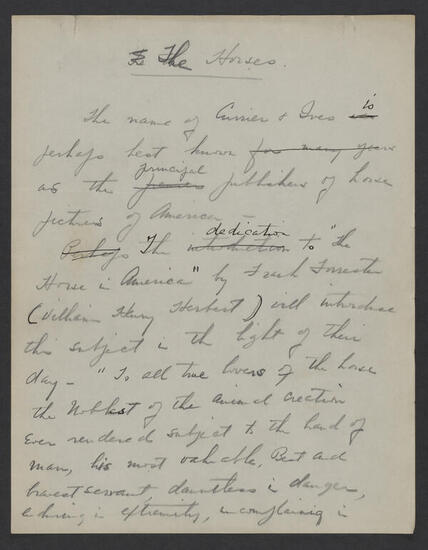 The Horses.
The name of Currier & Ives is
perhaps best known for many years
as the principal publishers of horse
pictures of America –
Perhaps The introduction dedication to "The
Horse in America" by Frank Forrester
(William Henry Herbert) will introduce
this subject in the light of their
day – "To all true lovers of the horse
the Noblest of the animal creation
Ever rendered subject to the hand of
man, his most valuable, Best and
bravest servant, dauntless in danger,
enduring in extremity, uncomplaining in